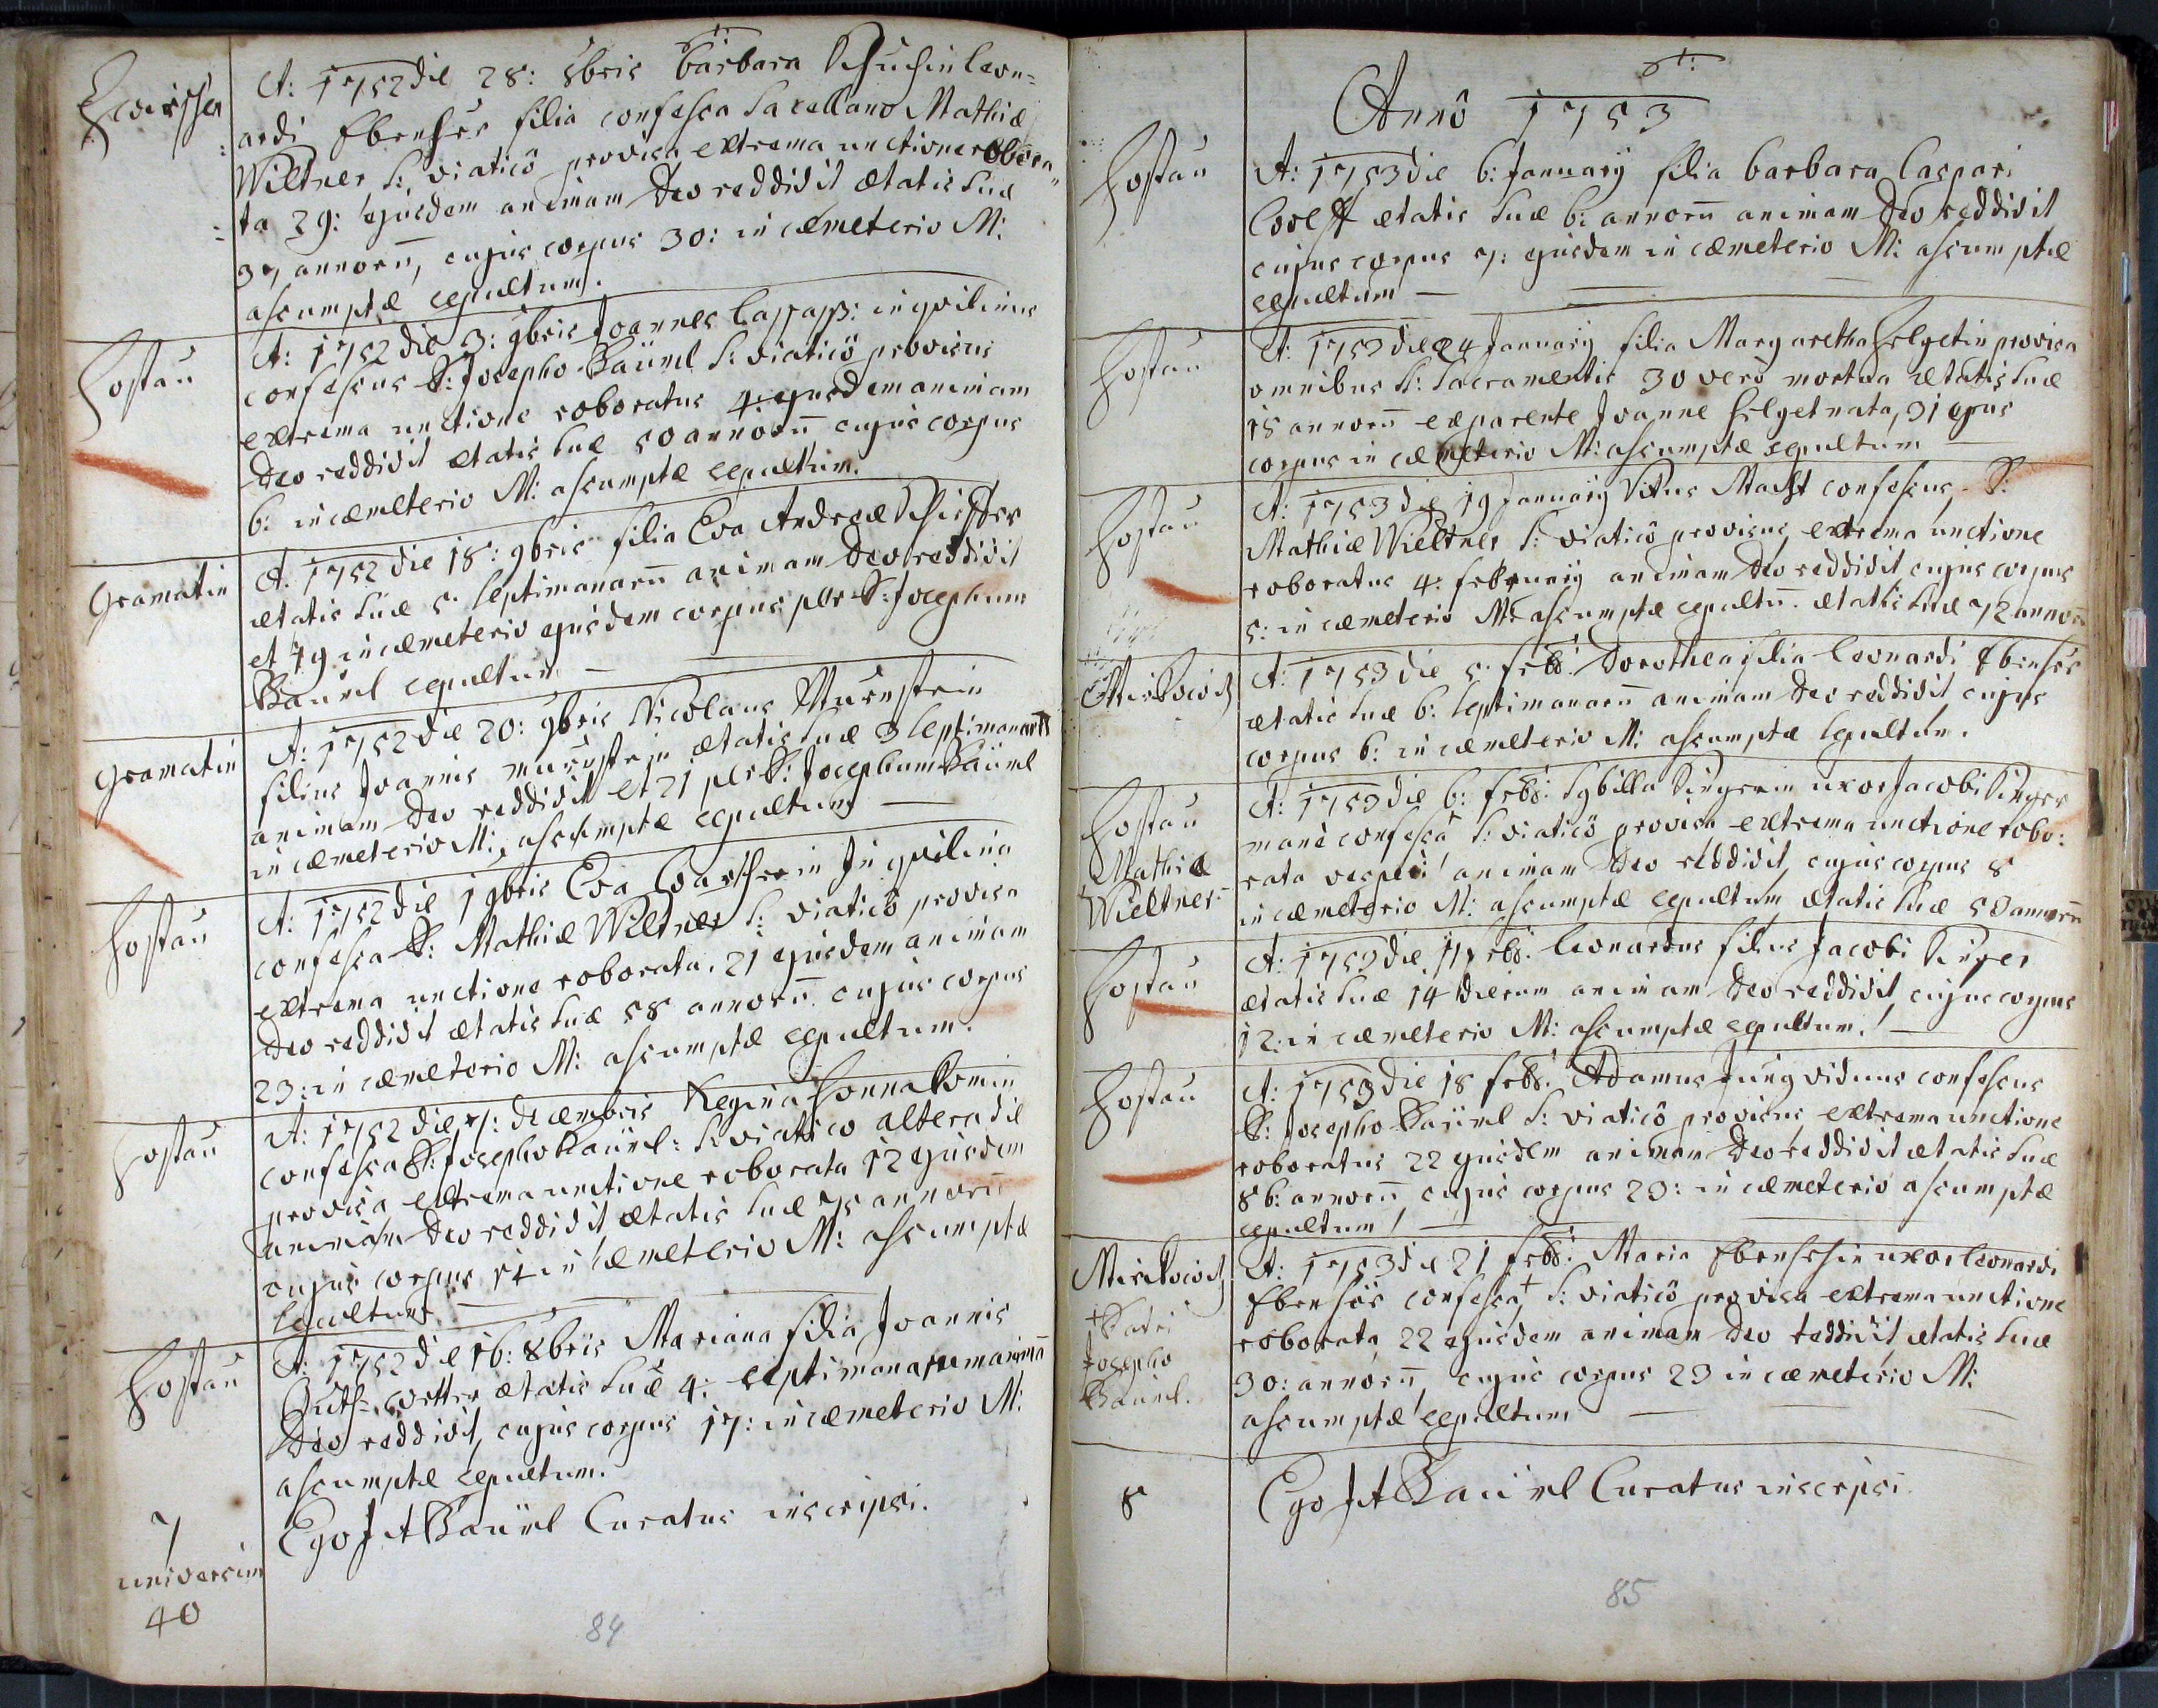 A: 1752 die 28: 8bris Barbara Leon=
ardi Ebenher filia confessa Sacellano Mathiæ
Wiltner S: viaticô provisa extrema unctione robora,,
ta 29: ejusdem animam Deo reddidit ætatis suæ
37 annorũ, cujus corpus 30: in cæmeterio M:
assumptæ sepultum.
Hostau
A: 1752 die 3: 9bris Joannes inqvilinus
confessus P: Josepho Baüml S: viaticô provisus
extrema unctione roboratus 4: ejusdem animam
Deo reddidit ætatis suæ 50 annorũ cujus corpus
6: in cæmeterio M: assumptæ sepultum.
Gramatin
A: 1752 die 18: 9bris filia Eva Andreæ
ætatis suæ 5 septimanarũ animam Deo reddidit
et 19 in cæmeterio ejusdem corpus per P: Josephum
Bäuml sepultum
Gramatin
A: 1752 die 20: 9bris Nicolaus Murnstein
filius Joannis murnstein ætatis suæ 3 septimanarũ
animam Deo reddidit et 21 per P: Josephum Baüml
in cæmeterio M: assumptæ sepultum
Hostau
A: 1752 die 1 9bris Eva Inqvilina
confessa P: Mathiæ Wiltner S: viaticô provisa
extrema unctione roborata. 21 ejusdem animam
Deo reddidit ætatis suæ 58 annorũ cujus corpus
23: in cæmeterio M: assumptæ sepultum.
Hostau
A: 1752 die 7: decembris Regina
confessa P: Josepho Baüml: S: viatico altera die
provisa extrema unctione roborata 12 ejusdem
animam Deo reddidit ætatis suæ 75 annorũ
cujus corpus 14 in cæmeterio M: assumptæ
sepultum.
Hostau
A: 1752 die 16: Xbris Mariana filia Joannis
ætatis suæ 4: septimanarum animã
Deo reddidit, cujus corpus 17: in cæmeterio M:
assumptæ sepultum.
Ego J A Baüml Curatus inscripsi.
7
universim
40
84
Annô 1753
Hostau
A: 1753 die 6: January filia barbara Caspari
ætatis suæ 6: annorũ animam Deo reddidit
cujus corpus 7: ejusdem in cæmeterio M: assumptæ
sepultum
Hostau
A: 1753 die 24 January filia Margaretha Helgetin provisa
omnibus S: Sacramentis 30 verò mortua ætatis suæ
18 annorũ ex parente Joanne Helget nata, 31 ejus
corpus in cæmeterio M: assumptæ sepultum
Hostau
A: 1753 die 19 January Vitus Macht confessus P:
Mathiæ Wieltner S: viaticô provisus, extrema unctione
roboratus 4: february animam Deo reddidit, cujus corpus
5: in cæmeterio M: assumptæ sepultũ. ætatis suæ 72 annorũ
Mirkowitz
A: 1753 die 5: febr: Dorothea filia Leonardi Ebenher
ætatis suæ 6: septimanarũ animam Deo reddidit cujus
corpus 6: in cæmeterio M: assumptæ sepultum.
Hostau
Mathiæ
Wieltner
A: 1753 die 6: febr: Sybilla Singerin uxor Jacobi Singer
mane confessa S: viaticô provisa extrema unctione robo:
rata vesperi animam Deo reddidit, cujus corpus 8
in cæmeterio M: assumptæ sepultum, ætatis suæ 50 annorũ
Hostau
A: 1753 die 11 febr: Leonardus filius Jacobi Singer
ætatis suæ 14 dierum animam Deo reddidit, cujus corpus
12: in cæmeterio M: assumptæ sepultum.
Hostau
A: 1753 die 18 febr: Adamus Jung viduus confessus
P: Josepho Baüml S: viaticô provisus, extrema unctione
roboratus 22 ejusdem animam Deo reddidit ætatis suæ
86: annorũ, cujus corpus 23: in cæmeterio assumptæ
sepultum
Mirckowitz
+ Patri
Josepho
Baüml.
A: 1753 die 21 febr: Maria Ebenherin uxor Leonardi
Ebenhör confessa + S: viaticô provisa extrema unctione
roborata 22 ejusdem animam Deo reddidit, ætatis suæ
30: annorũ, cujus corpus 23 in cæmeterio M:
assumptæ sepultum
8
Ego J A Baüml Curatus inscripsi
85